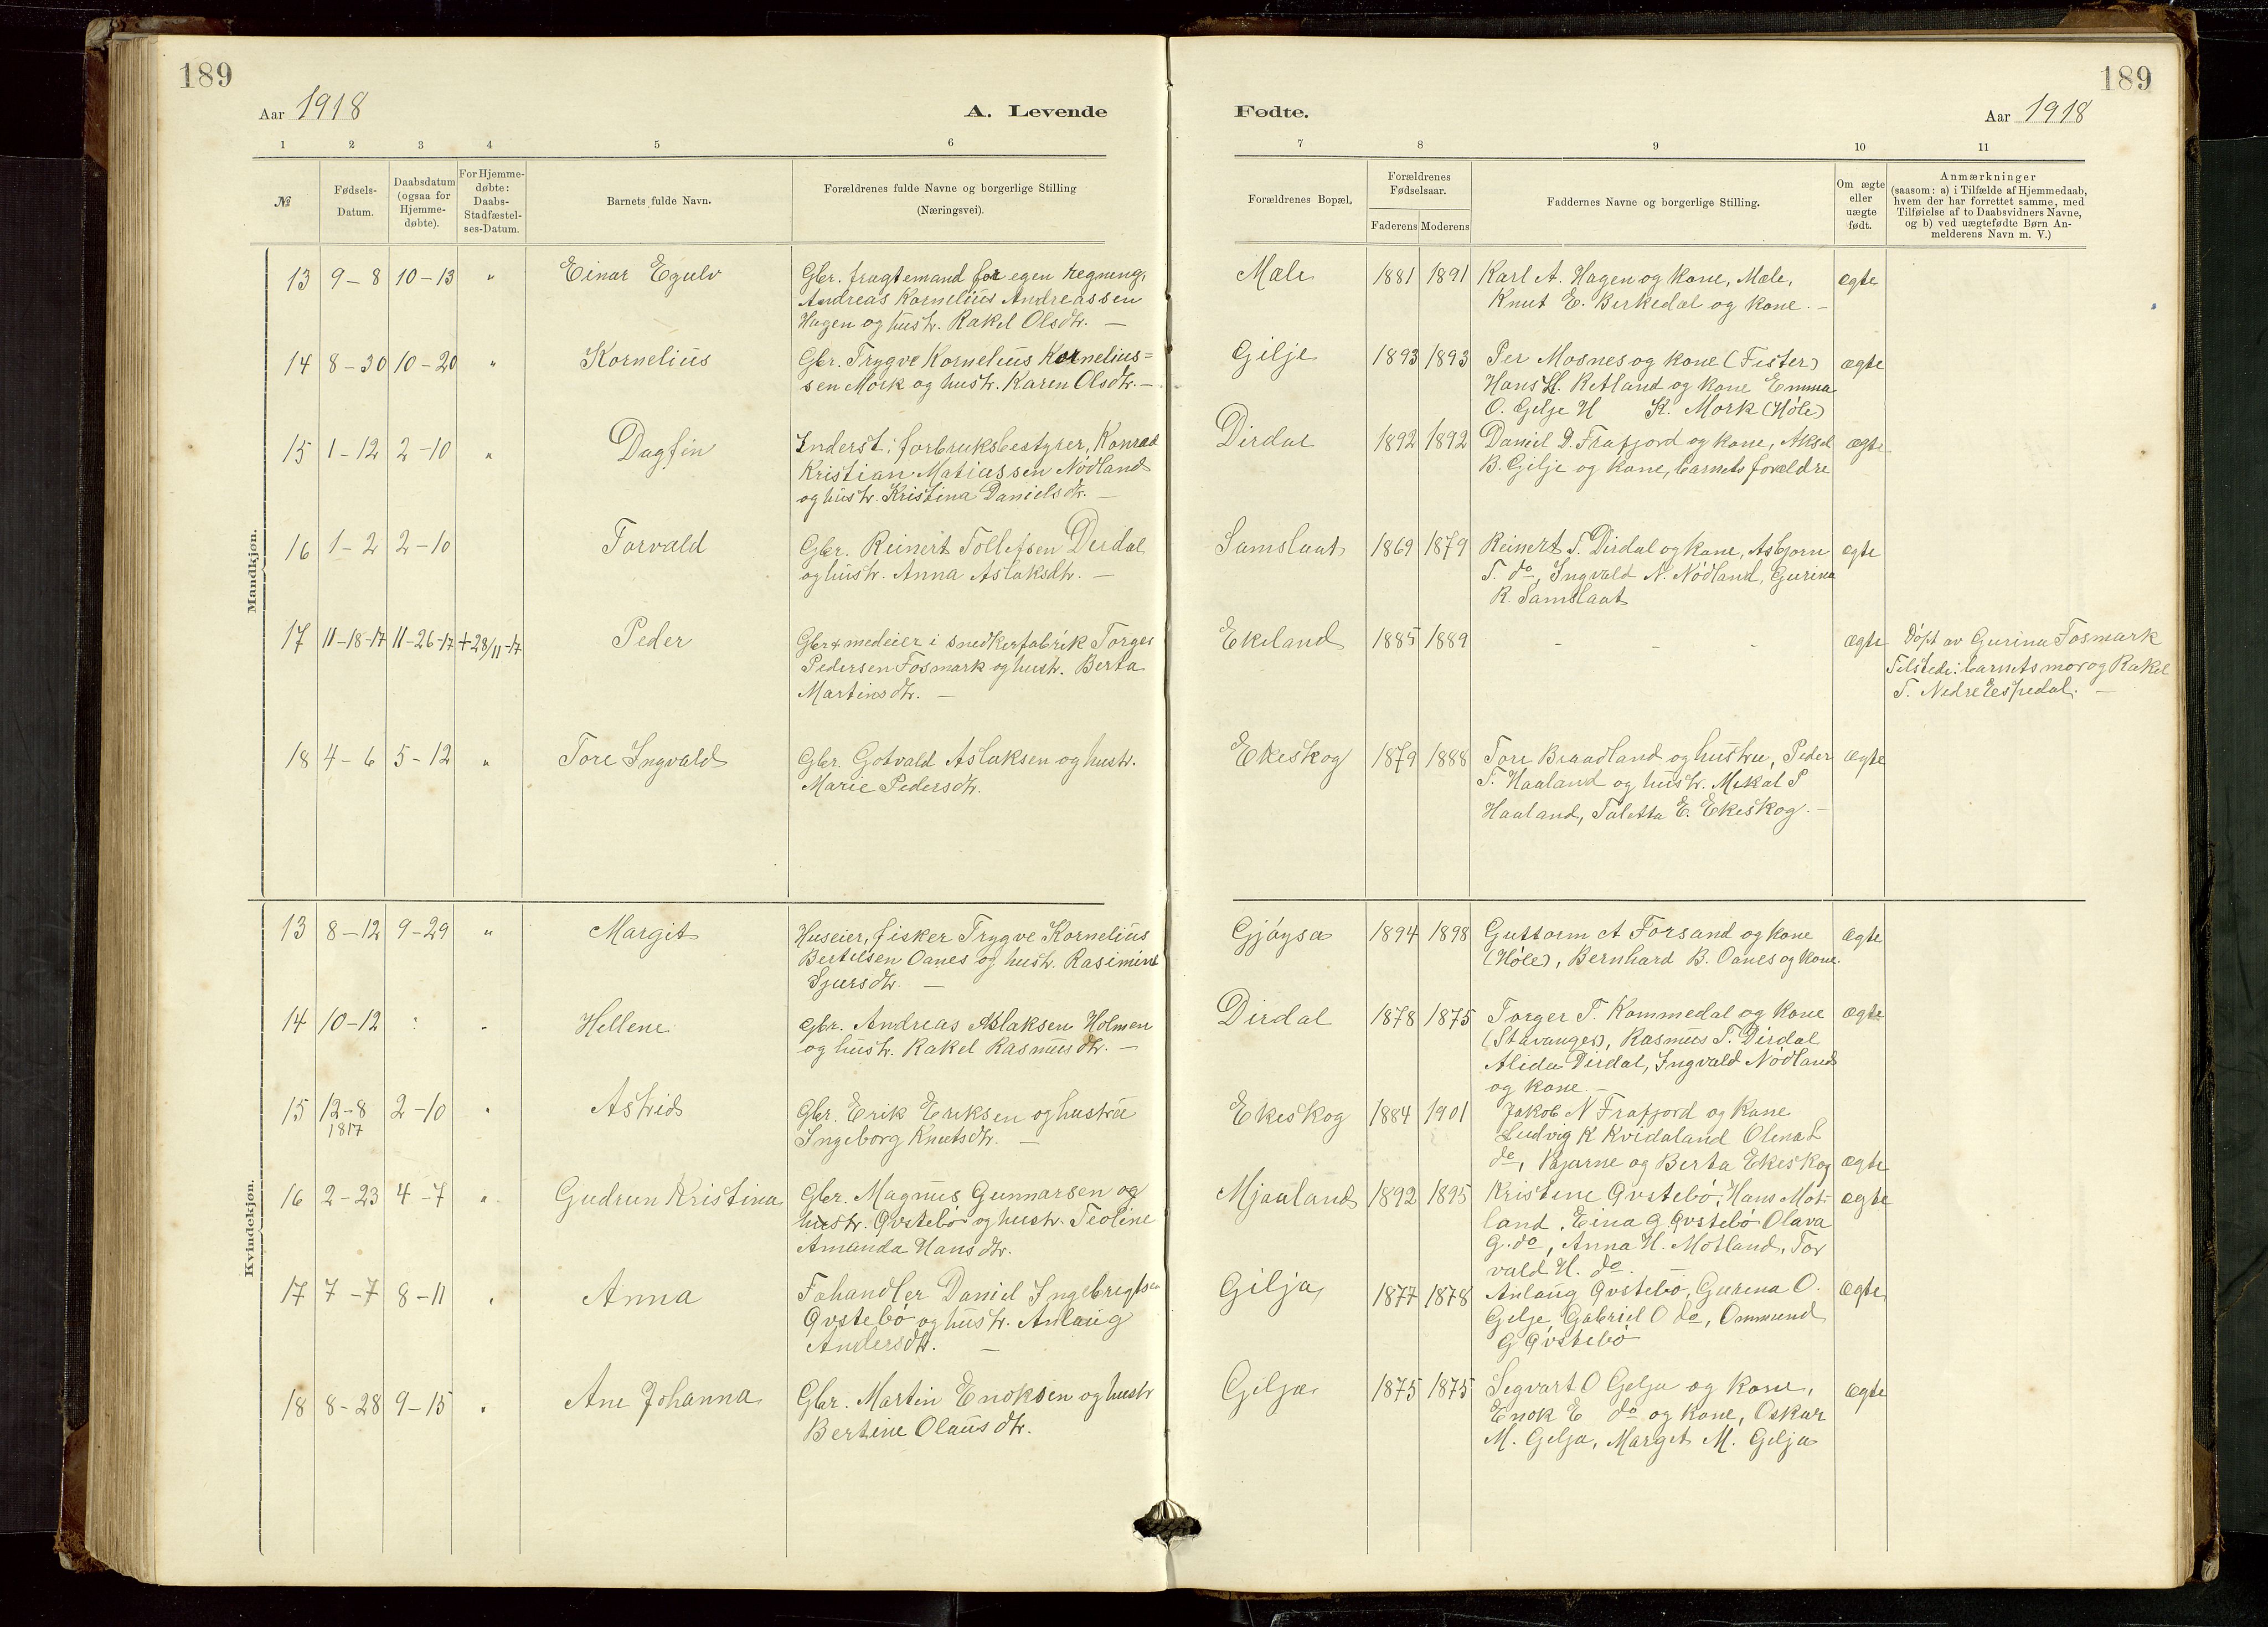 189
Aar 1918
A. Levende
1 2 3 4 5 6
№
Fødsels-
Datum.
Daabsdatum
(ogsaa for
Hjemme-
døbte).
For Hjemme-
døbte:
Daabs-
Stadfæstel-
ses-Datum.
Barnets fulde Navn.
Forældrenes fulde Navne og borgerlige Stilling
(Næringsvei).
Mandkjøn.
13 9-8 10-13 " Einar Egulv
Gbr. fragtemand for egen regning,
Andreas Kornelius Andreassen
Hagen og hustr. Rakel Olsdtr. —
14 8-30 10-20 " Kornelius
Gbr. Trygve Kornelius Kornelius=
sen Mork og hustr. Karen Olsdtr. —
15 1-12 2-10 " Dagfin
Inderst: forbruksbestyrer, Konrad
Kristian Matiassen Nódland
og hustr. Kristina Danielsdtr. —
16 1-2 2-10 Torvald
Gbr. Reinert Tollefsen Dirdal
og hustr. Anna Aslaksdtr. —
17 11-18-17 11-26-17 +28/11-17 Peder
Gbr+medeier i snedkerfabrik Torger
Pedersen Fosmark og hustr. Berta
Martinsdtr. —
18 4-6 5-12 " Tore Ingvald
Gbr. Gotvald Aslaksen og hustr.
Marie Pedersdtr.
Kvindekjøn.
13 8-12 9-29 " Margit
Huseier, fisker Trygve Kornelius
Bertelsen Oanes og hustr. Rasimine
Sjursdtr. —
14 10-12 : " Hellene
Gbr. Andreas Aslaksen Holmen
og hustr. Rakel Rasmusdtr. —
15 12-8 2-10 " Astrid
1817
Gbr. Erik Eriksen og hustru
Ingeborg Knutsdtr. —
16 2-23 4-7 " Gudrun Kristina
Gbr. Magnus Gunnarsen og
hustr. Qvstebó og hustr. Teoline
Amanda Hansdtr.
17 7-7 8-11 " Anna
Fehandler Daniel Ingebregtsen
Qvstebó og hustr. Anlaug
Andersdtr. —
18 8-28 9-15 " Ane Johanna
Gbr. Martin Enoksen og hustr
Bertine Olausdtr.
189
Fødte.
Aar 1918
7 8 9 10 11
Forældrenes Bopæl.
Forældrenes
Fødselsaar.
Faderens Moderens
Faddernes Navne og borgerlige Stilling.
Om ægte
eller
uægte
født.
Anmærkninger
(saasom: a) i Tilfælde af Hjemmedaab,
hvem der har forrettet samme, med
Tilføielse af to Daabsvidners Navne,
og b) ved uægtefødte Børn An-
melderens Navn m. V.)
Mæle 1881 1891 Karl A. Hagen og kone, Mæle, ægte
Knut E. Birkedal og kone. —
Gilje 1893 1893 Per Mosnes og kone (Fister) ægte
Hans H. Retland og kone Emma
O. Gilje H K. Mork (Høle)
Dirdal 1892 1892 Daniel D. Frafjord og kone, Aksel ægte
B. Gilje og kone, barnets foreldre
Samslaat 1869 1879 Reinert T. Dirdal og kone, Asbjorn ægte
T. do, Ingvald N. Nódland, Gurina
R. Samslaat
Ekeland 1885 1889 - - - ægte
Dópt av Gurina Fosmark
Tilstede: barnets mor og Rakel
T. Nedre Espedal. —
Ekeskog 1879 1888 Tore Braadland og hustru, Peder ægte
T. Haaland og hustr. Mikal P
Haaland, Taletta E. Ekeskog. —
Gjóysa 1894 1898 Guttorm A Forsand og kone ægte
(Høle), Bernhard B. Oanes og kone.
Dirdal 1878 1875 Torger T. Kommedal og kone ægte
(Stavanger), Rasmus T. Dirdal
Alida Dirdal, Ingvald Nódland
og kone. —
Ekeskog 1884 1901 Jakob N Frafjord og kone
Ludvig K Kvidaland Olena L
do, Bjarne og Berta Ekeskog ægte
Mjaaland 1892 1895 Kristine Qvstebó, Hans Mot- ægte
land, Eina G. Qvstebó Olava
G. do, Anna H. Motland, Tor
vald H. do. —
Gilja 1877 1878 Anlaug Qvstebó, Gurina O. ægte
Gilje, Gabriel O do, Ommund
G Qvstebó
Gilja 1875 1875 Segvart O Gelja og kone, ægte
Enok E do og kone, Oskar
M. Gelja, Marget M. Gelja